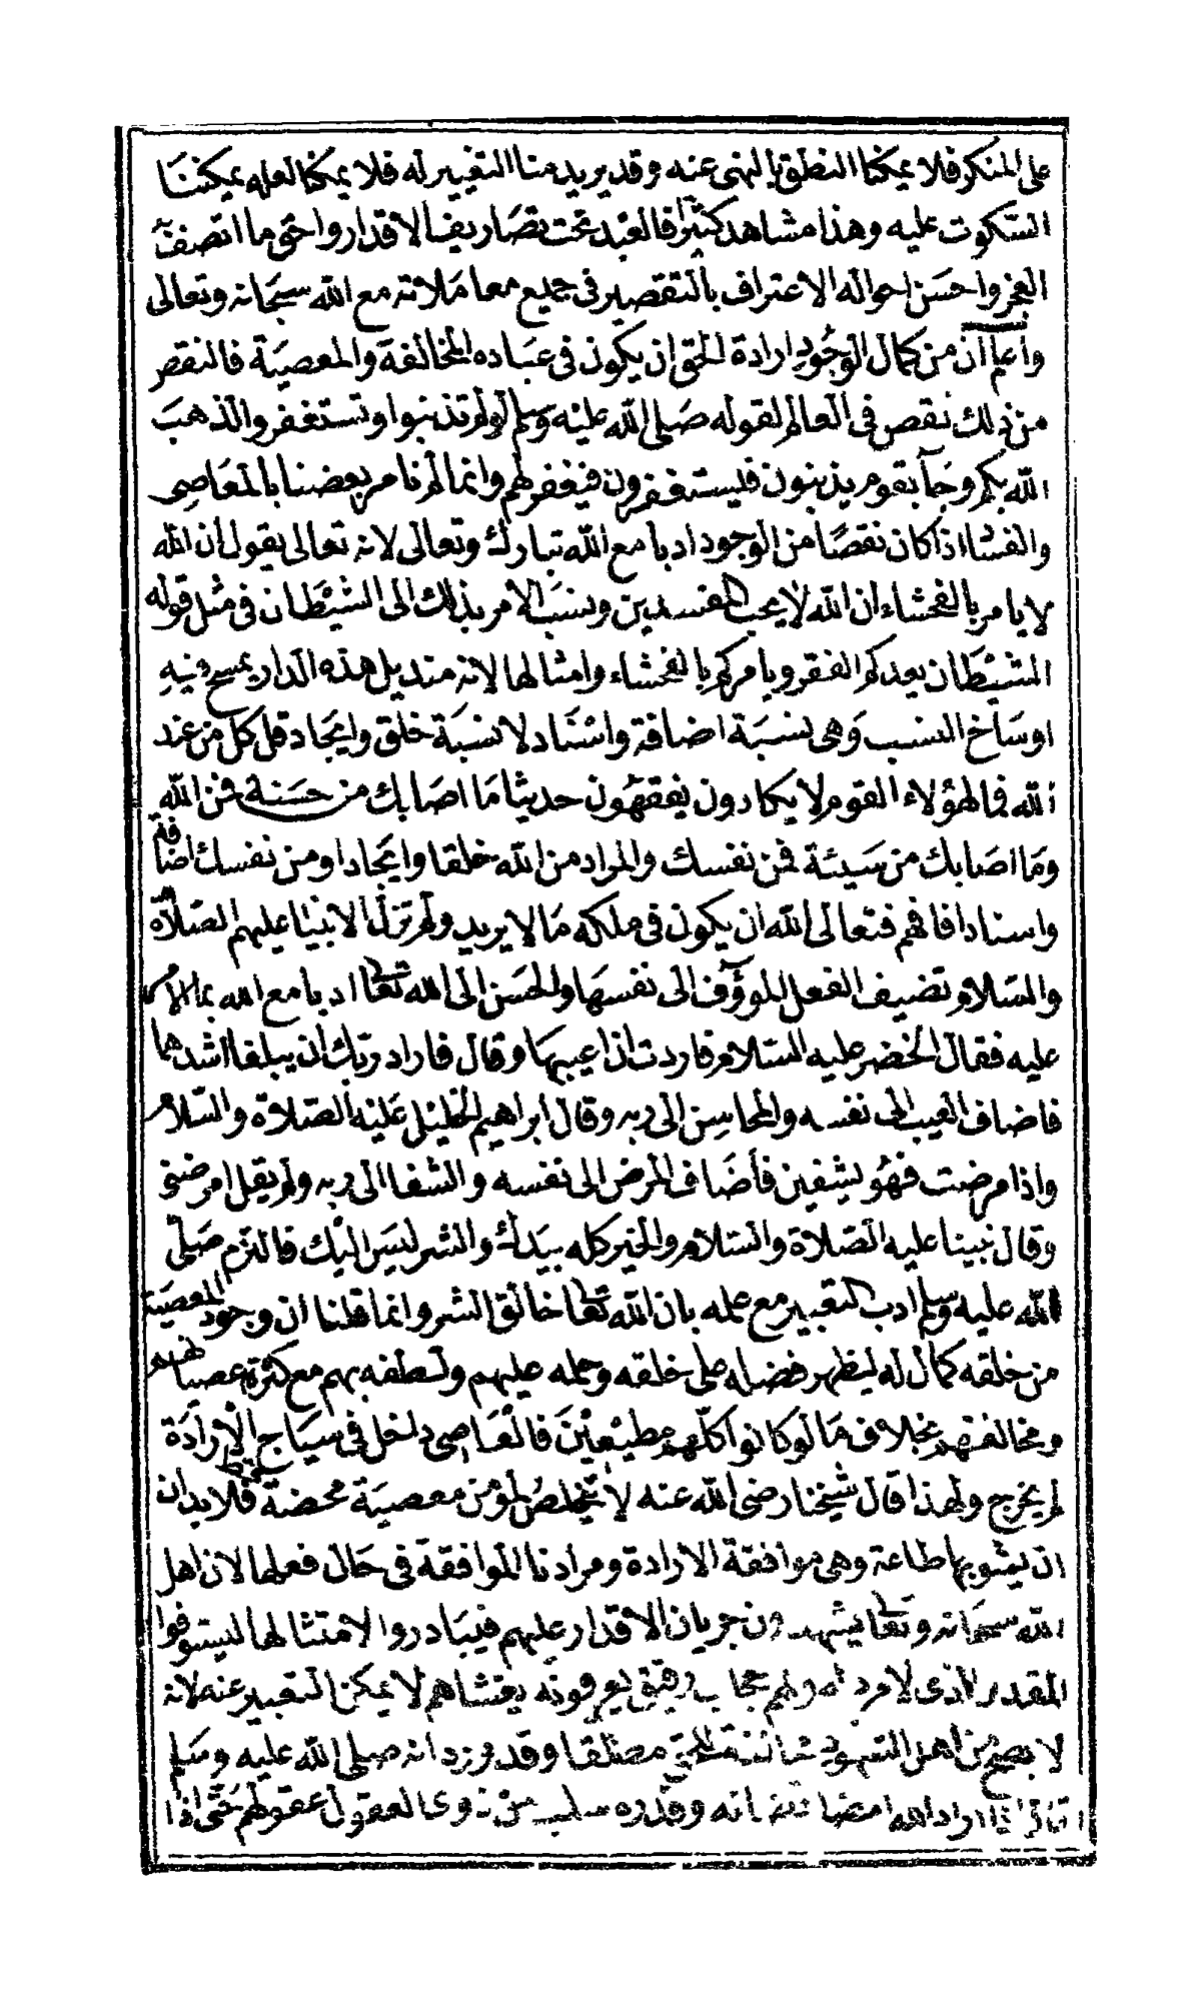 على المنكر فلا يمكننا النطق بالنهى عنه وقد يريد منا التغيير له فلا يمكننا لعله يمكننا
السكوت عليه وهذا مشاهد كثيرا فالعبد تحت تصاريف الاقدار واخى ما اتصف به
العجز واحسن احواله الاعتراف بالتقصير فى جميع معاملاته مع الله سبحانه وتعالى
واعلم ان من كمال الوجود ارادة الحق ان يكون فى عباده المخالفة والمعصية فالنقص
من ذلك نقص فى العالم لقوله صلى الله عليه وسلم لو لم تذنبوا وتستغفروا لذهب
الله بكم وجاء بقوم يذنبون فيستغفرون فيغفر لهم وانما لم نامر بعضنا بالمعاصى
والفشا اذا كان نقصا من الوجود ادبا مع الله تبارك وتعالى لانه تعالى يقول ان الله
لا يامر بالفحشاء ان الله لا يحب المفسدين وينسب الامر بذلك الى الشيطان فى مثل قوله
الشيطان يعدكم الفقر ويامركم بالفحشاء وامثالها لانه منديل هذه الدار يمسح فيه
اوساخ النسب وهى نسبة اضافة واسناد لا نسبة خلق وايجاد قل كل من عند
الله فمالهؤلاء القوم لا يكادون يفقهون حديثا ما اصابك من حسنة فمن الله
وما اصابك من سيئة فمن نفسك والمراد من الله خلقا وايجادا ومن نفسك اضافة
واسنادا فافهم فتعالى الله ان يكون فى ملكه ما لا يريد ولم تزل الانبيا عليهم الصلاة
والسلام تضيف الفعل المؤوف الى نفسها والحسن الى الله تعالى ادبا مع الله بما الامر كا
عليه فقال الخضر عليه السلام فاردت ان اعيبها وقال فاراد ربك ان يبلغا اشدهما
فاضاف العيب الى نفسه والمحاسن الى ربه وقال ابراهيم الخليل عليه الصلاة والسلام
واذا مرضت فهو يشفين فأضاف المرض الى نفسه والشفا الى ربه ولم يقل امرضنى
وقال نبينا عليه الصلاة والسلام والخير كله بيدك والشر ليس اليك فالتزم صلى
الله عليه وسلم ادب التعبير مع علمه بان الله تعالى خالق الشر وانما قلنا ان وجود المعصية
من خلقه كمال له ليظهر فضله على خلقه وحمله عليهم ولطفه بهم مع كثرة عصيانهم
ومخالفتهم بخلاف ما لو كانوا كلهم مطيعين فالعاصى داخل فى سياج الارادة
لم يخرج ولهذا قال شيخنا رضى الله عنه لا يتخلص لمؤمن معصية محضة قط فلا بد ان
ان يشوبها طاعة وهى موافقة الارادة ومرادنا الموافقة فى حال فعلها لان اهل
الله سبحانه وتعالى يشهدون جريان الاقدار عليهم فيبادروا لامتثالها ليستوفوا
المقدر الذى لا مرد له ولهم حجاب رقيق يعرفونه يغشاهم لا يمكن التعبير عنه لانه
لا يصح من اهل الشهود مخالفة للحق مطلقا وقد ورد انه صلى الله عليه وسلم
قال اذا اراد الله امضا قضائه وقدره سلب من ذوى العقول عقولهم حتى اذا